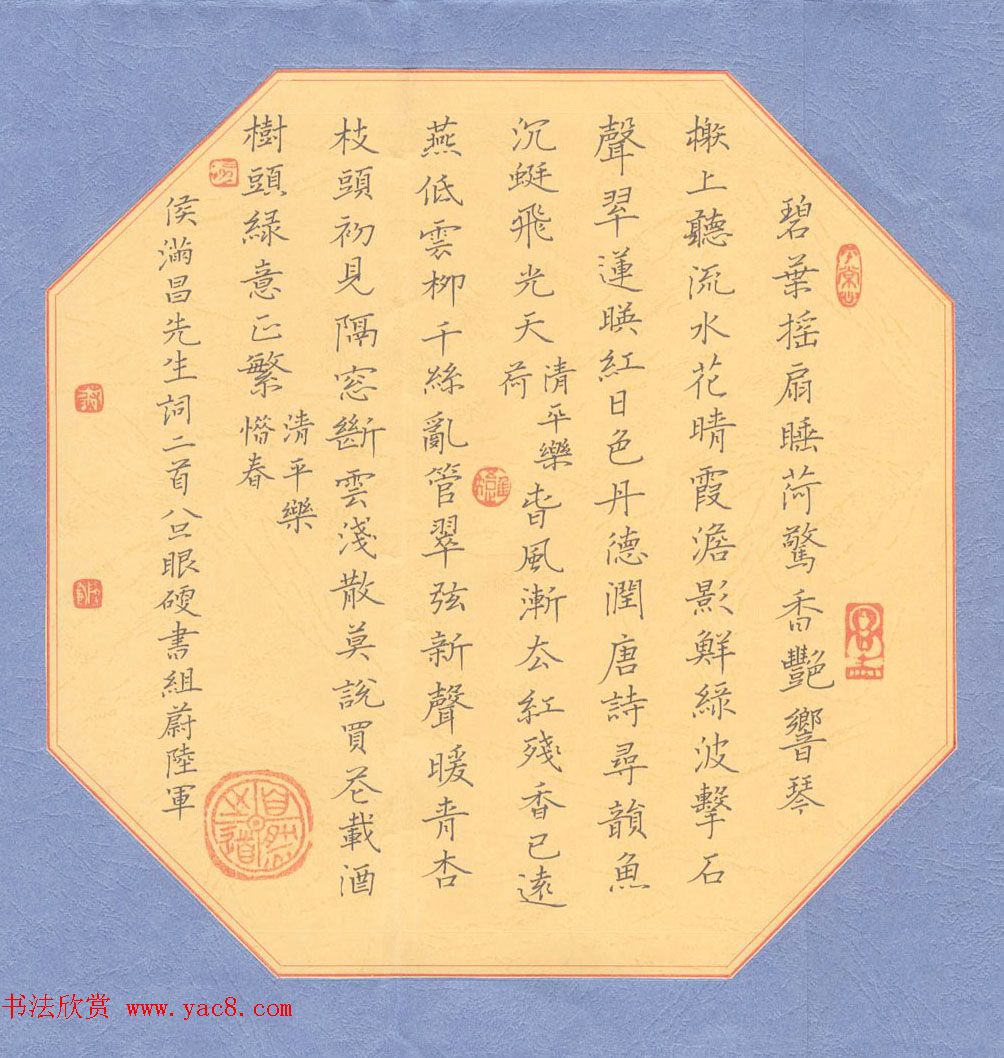 碧葉摇扇睡荷驚香艷響琴
榭上聽流水花晴霞澹影鮮綠波擊石
聲翠蓮暎紅日色丹德潤唐詩尋韻魚
沉蜓飛光天
清平樂
荷
春風漸去紅殘香已遠
燕低雲柳千絲亂管翠弦新聲暖青杏
枝頭初見隔窓斷雲淺散莫說買花載酒
樹頭緑意正繁
清平樂
惜春
侯滿昌先生詞二首 眼硬書組蔚陸軍
自然
道
书法欣赏 www.yac8.com